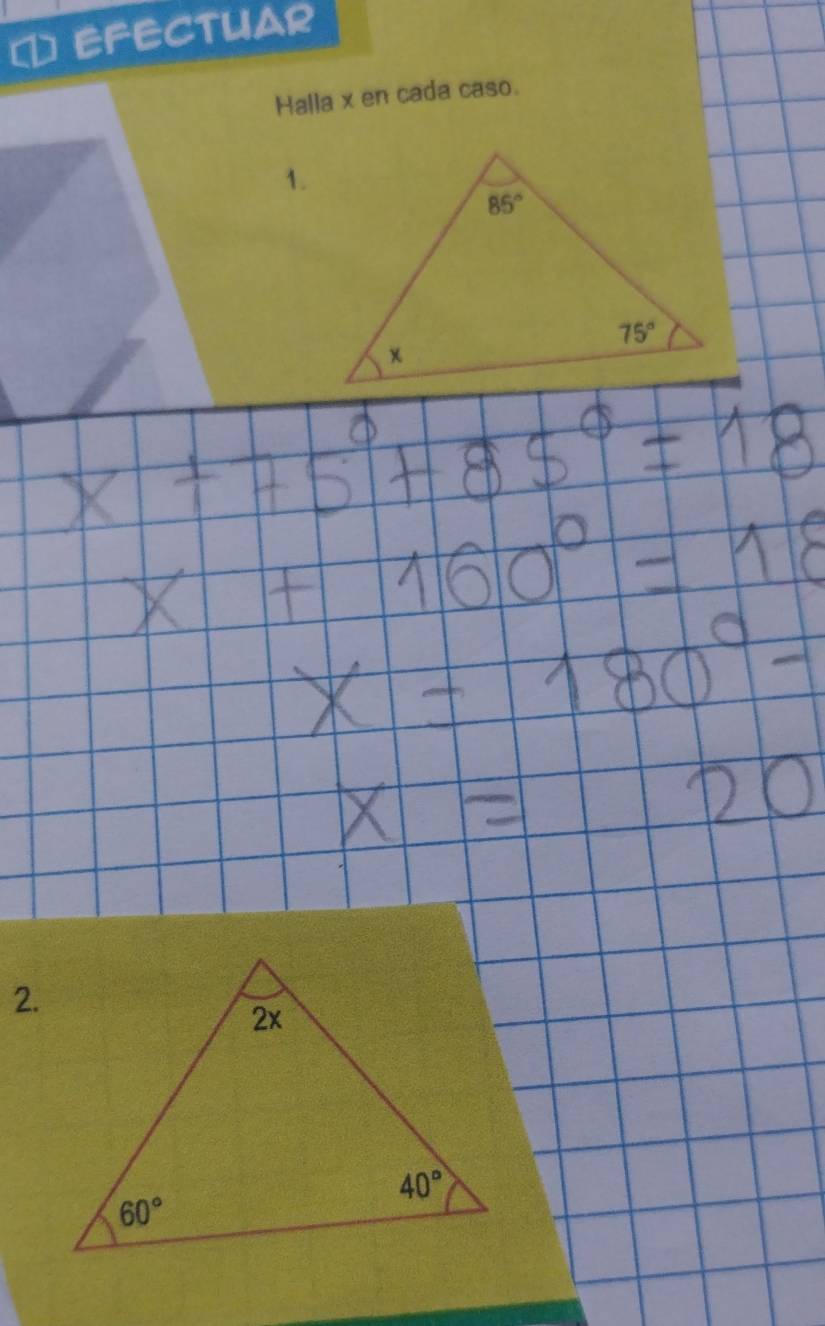 EFECTUAR
Halla x en cada caso.
1.
85°
75°
x
x + 75° + 85° = 18
x + 160° = 18
x = 180° -
x = 20
2.
2x
40°
60°